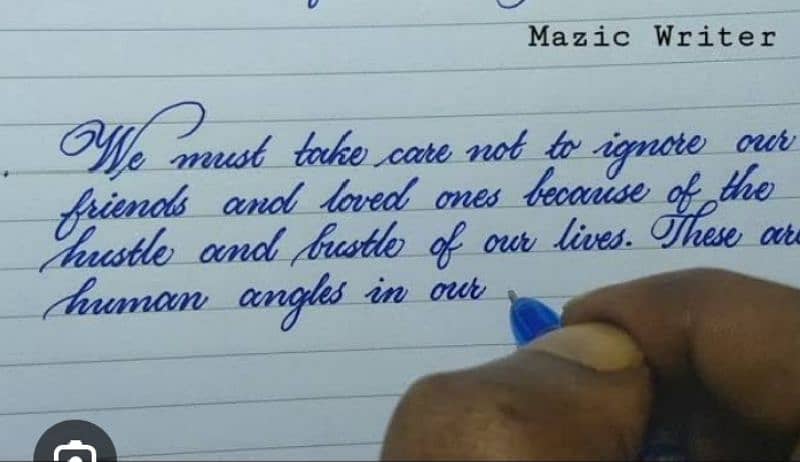 Mazic Writer
We must take care not to ignore our
friends and loved ones because of the
hustle and bustle of our lives. These are
human angles in our